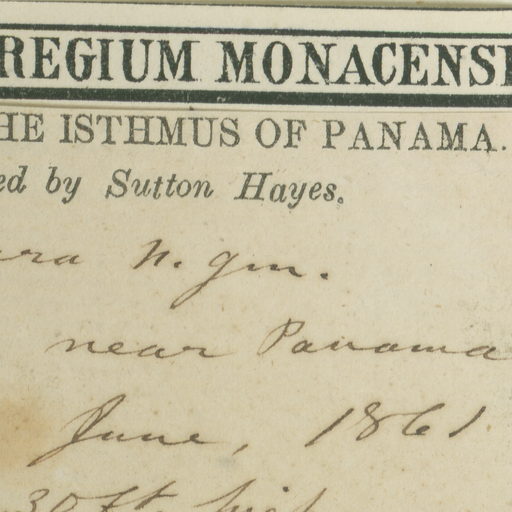 REGIUM MONACENS
HE ISTHMUS OF PANAMA.
ed by Sutton Hayes.
ra n. gen.
near Panama
June, 1861
30 ft. high